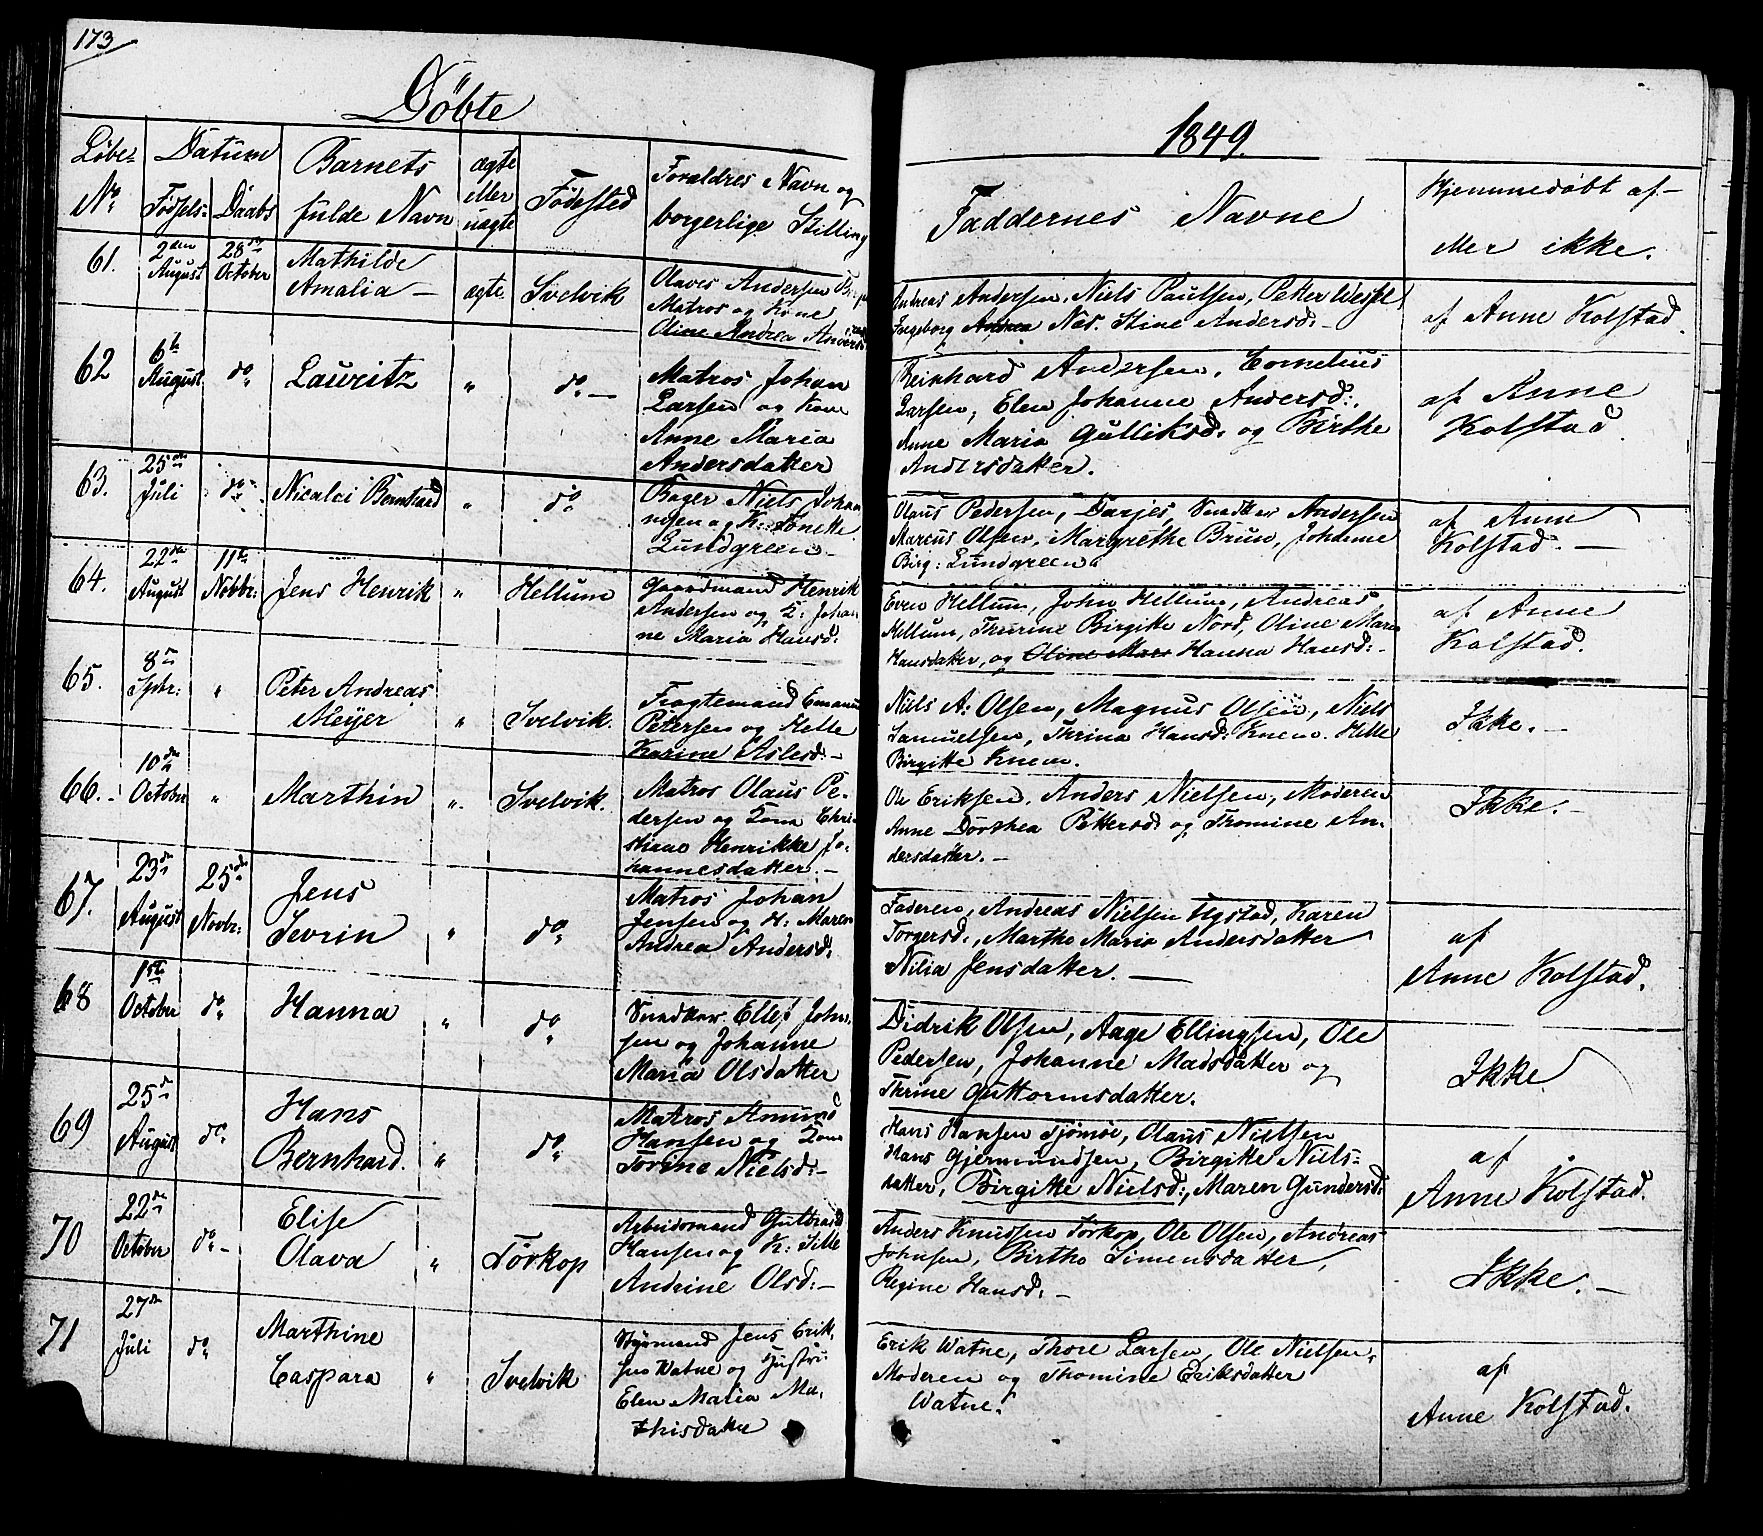 173
Döbte
1849.
Löbe-
No
Datum
Födsels-
Daabs
Barnets
fulde Navn
ægte
eller
uægte
Födested
Forældres Navn og
borgerlige Stilling
Faddernes Navne
Hjemmedöbt af
eller ikke.
61.
2den
August
28de
October
Mathilde
Amalia
ægte.
Svelvik
Olaves Andersen
Matros og Kone
Oline Andrea
Andreas Andersen, Niels Paulsen, Petter Wessel
Ingeborg Andrea Næs. Stine Andersd:
af Anne Kolstad.
62
6te
August
do
Lauritz
"
do
Matros Johan
Larsen og Kone
Anne Maria
Andersdatter
Reinhard Andersen, Cornelius
Larsen, Elen Johanne Andersd:.
Anne Maria Gulliksd: og Birthe
Andersdatter.
af Anne
Kolstad.
63.
25de
Juli
do
Nicolai
"
do
Bager Niels Johan
nesen og K: Tonette
Lundgreen
Olaus Pedersen, Andersen
Marcus Olsen, Margrethe Brun, Johanne
Birg: Lundgreen
af Anne
Kolstad.
64.
22de
August
11te
Novbr:
Jens Henrik
"
Hellum
Gaardmand Henrik
Andersen og K: Johan-
ne Maria Hansd:
Even Hellum, John Hellum, Andreas
Hellum, Thrine Birgitte Nord, Oline Maria
Hansdatter, og Oline Mari Hanna Hansd:
af Anne
Kolstad.
65.
8de
Sptbr:
"
Peter Andreas
Meyer
"
Svelvik.
Fragtemand Emanuel
Petersen og Helle
Karine Aslesd:
Niels A: Olsen, Magnus Olsen, Niels
Samuelsen, Thrina Hansd: Knem. Helle
Birgitte Knem.
Ikke.
66.
10de
October
"
Marthin
"
Svelvik.
Matros Olaus Pe-
dersen og Kone Chri-
stiane Henrikke Jo-
hannesdatter.
Ole Eriksen, Anders Nielsen, Moderen
Anne Dorthea Pettersd: og Thomine An-
dersdatter.
Ikke.
67.
23de
August
25de
Novbr:
Jens
Sevrin
"
do
Matros Johan
Jensen og K: Maren
Andrea Andersd:
Faderen, Andreas Nielsen Ugstad, Karen
Torgersd:, Marthe Maria Andersdatter
Nilia Jensdatter.
af
Anne Kolstad.
68
1ste
October
do
Hanna
"
do
Ellef John-
sen og Johanne
Maria Olsdatter
Didrik Olsen, Aage Ellingsen, Ole
Pedersen, Johanne Madsdatter og
Thrine Guttormsdatter.
Ikke
69
25de
August
do
Hans
Bernhard.
"
do
Matros Amund
Hansen og Kone
Torine Nielsd:
Hans Hansen Tjömöe, Olaus Nielsen
Hans Gjermundsen, Birgitte Niels-
datter, Birgitte Nielsd:, Maren Gundersd:
af
Anne Kolstad.
70
22de
October
do
Elise
Olava
"
Törkop
Arbeidsmand Gulbrand
Hansen og K: Sille
Andrine Olsd:
Anders Knudsen Törkop, Ole Olsen, Andreas
Johnsen, Birthe Simensdatter,
Regine Hansd:
Ikke.
71
27de
Juli
do
Marthine
Caspara
"
Svelvik
Styrmand Jens Erik-
sen Watne og Hustru
Elen Malia Ma-
thisdatter
Erik Watne, Thore Larsen, Ole Nielsen,
Moderen og Thomine Eriksdatter
Watne.
af
Anne Kolstad.